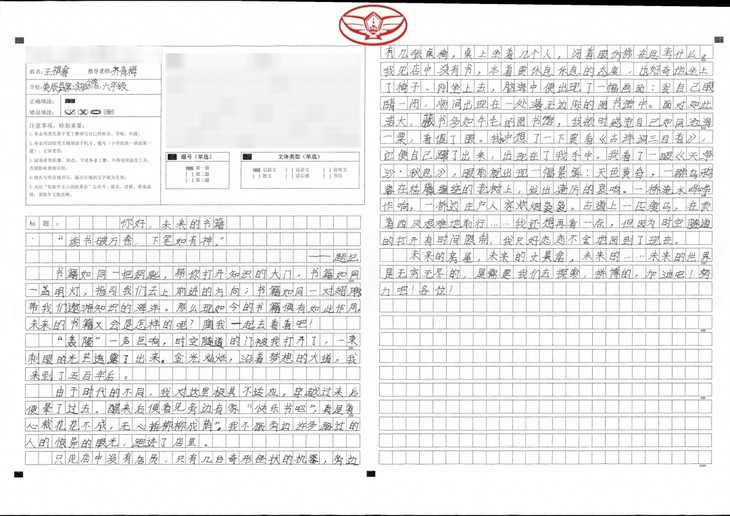 姓名：王祺睿 指导老师：齐春梅
学校： 班：六年级
正确填涂：
错误填涂：
注意事项，特别重要：
题号（单选）
第一题
第二题
第三题
文体类型（单选）
记叙文
说明文
散文
议论文
读后感
书信
标题：
你好，未来的书籍
“读书破万卷，下笔如有神。”
——题记
书籍如同一把钥匙，帮你打开知识的大门，书籍如同
一盏明灯，指引我们去上前进的方向；书籍如同一对翅膀
带我们遨游知识的海洋。那么现如今的书籍便有如此作用，
未来的书籍又会是怎样的呢？随我一起去看看吧！
“轰隆”一声巨响，时空隧道的门被我打开了，一束
刺眼的光芒透露了出来。金光灿灿，沿着梦想的大道，我
来到了五百年后。
由于时代的不同，我对这里极其不适应，穿越过来后
便晕了过去，醒来后便看见旁边有家“快乐书吧”，真是有
心栽花花不成，无心插柳柳成荫。我不顾旁边许多路过的
人的惊异的眼光，跑进了店里。
只见店中没有店员，只有几台奇形怪状的机器，旁边
有几张桌椅，桌上坐着几个人，闭着眼仿佛在思考什么。
我见店中没有书，本着要休息休息的态度，也好奇地坐上
了椅子。刚坐上去，脑海中便出现了一幅画面：我自己眼
睛一闭，瞬间出现在一处漫无边际的图书馆中。面对如此
浩大，藏书多如牛毛的图书馆，我顿时感觉自己如同沧海
一粟，看傻了眼。我中想了一下要看《古诗词三百首》，
它便自己蹦了出来，出现在了我手中。我看了一眼《天净
沙·秋思》，眼前就出现一幅景象：天色黄昏，一群乌鸦
着在枯藤缠绕的老树上，发出凄厉的哀鸣。一桥流水哗哗
作响，一桥边庄户人家炊烟袅袅。古道上一匹瘦马，在
着西风艰难地前行……我还想再看一看，但因为时空隧道
的打开有时间限制，我只好恋恋不舍地回到了现在。
未来的房屋，未来的文具盒，未来的……未来的世界
是无穷无尽的，是需要我们去探索，拼搏的，加油吧！努
力吧！各位！